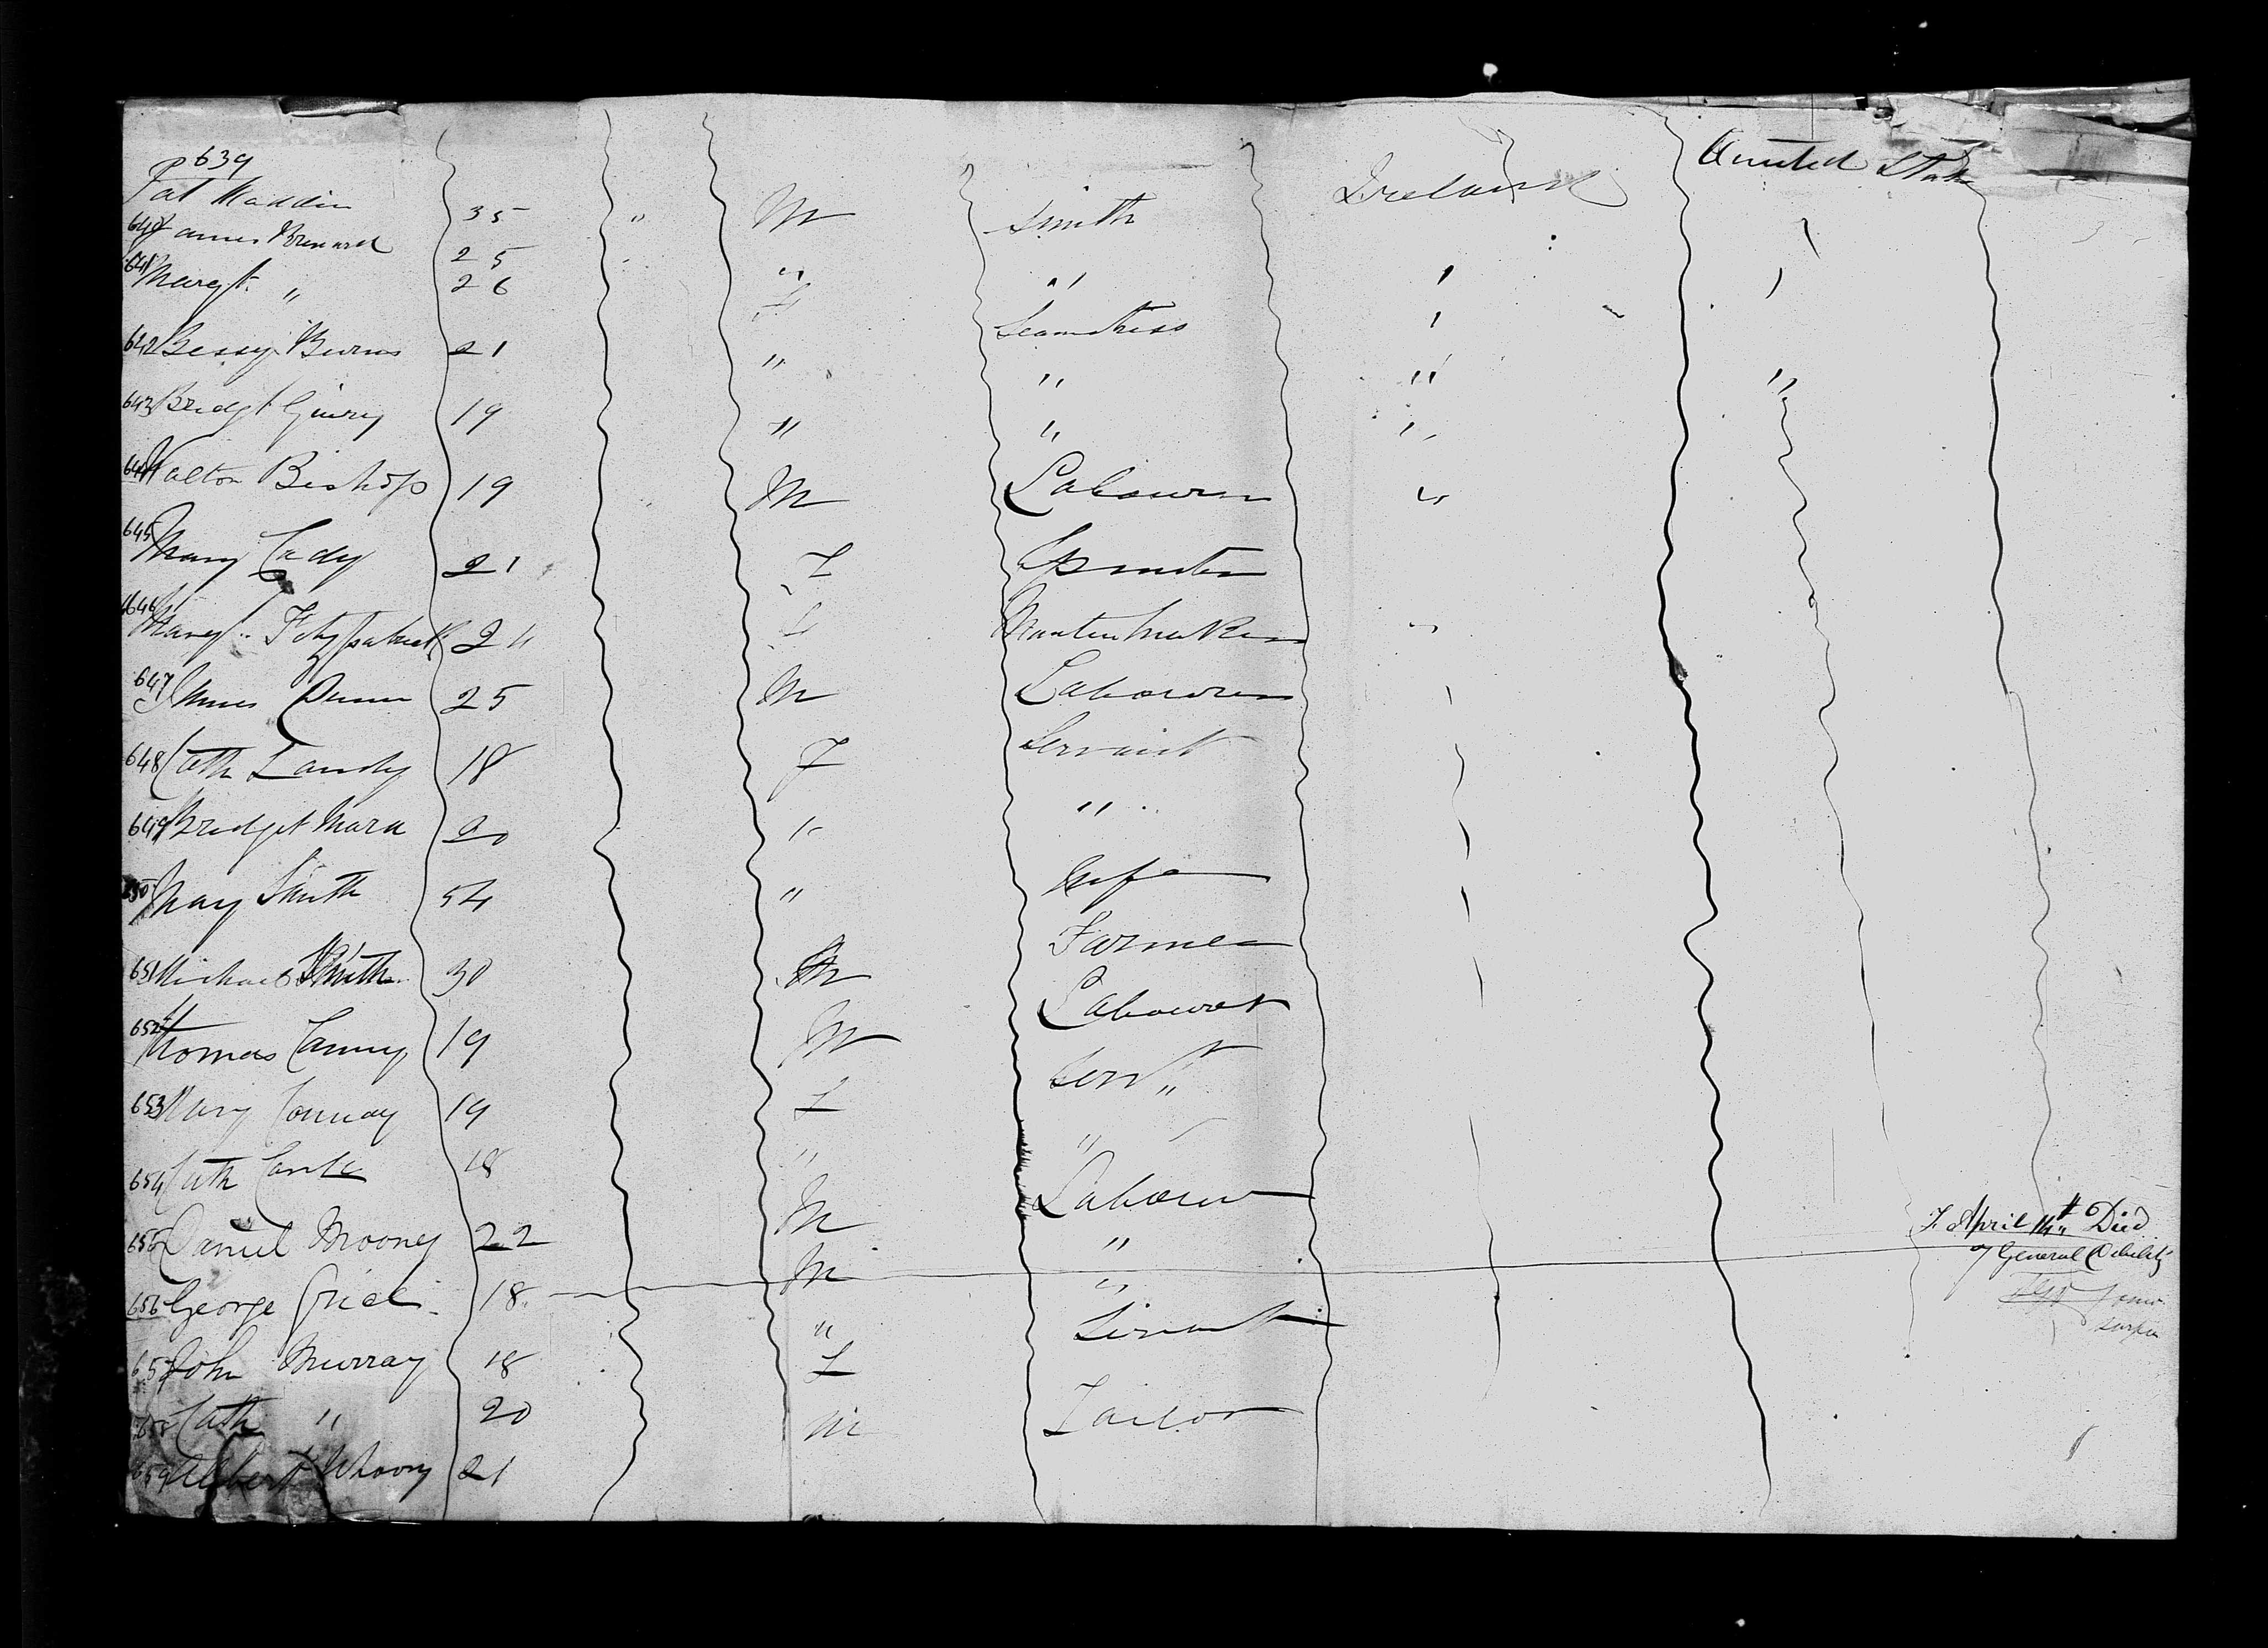 639 Ireland United States
Pat Maddin 35 " M Smith
640 James Brenard 25 " "
641 Margt. " 26 F Seamstress
642 Bessy Burns 21 " " " "
643 Bridgt 19 " " "
644 Walton Bishop 19 M Labourer "
645 Mary Cady 21 F Spinster
646 Margt. Fitzpatrick 24 F Mantua Maker "
647 James Dunn 25 M Labourer
648 Cath Landy 18 F Servant
649 Bridget Mara 20 " "
650 Mary Smith 54 " Wife
651 Michael Smith 30 M Farmer
652 Thomas Canny 19 M Labourer
653 Mary Conway 19 F Servt
654 Cath 18 " "
655 Daniel Mooney 22 M Labourer
656 George 18 M " F. April 14th Died
of General Debility
657 John Murray 18 " "
658 Cath " 20 F Servant
659 Albert 21 M Tailor